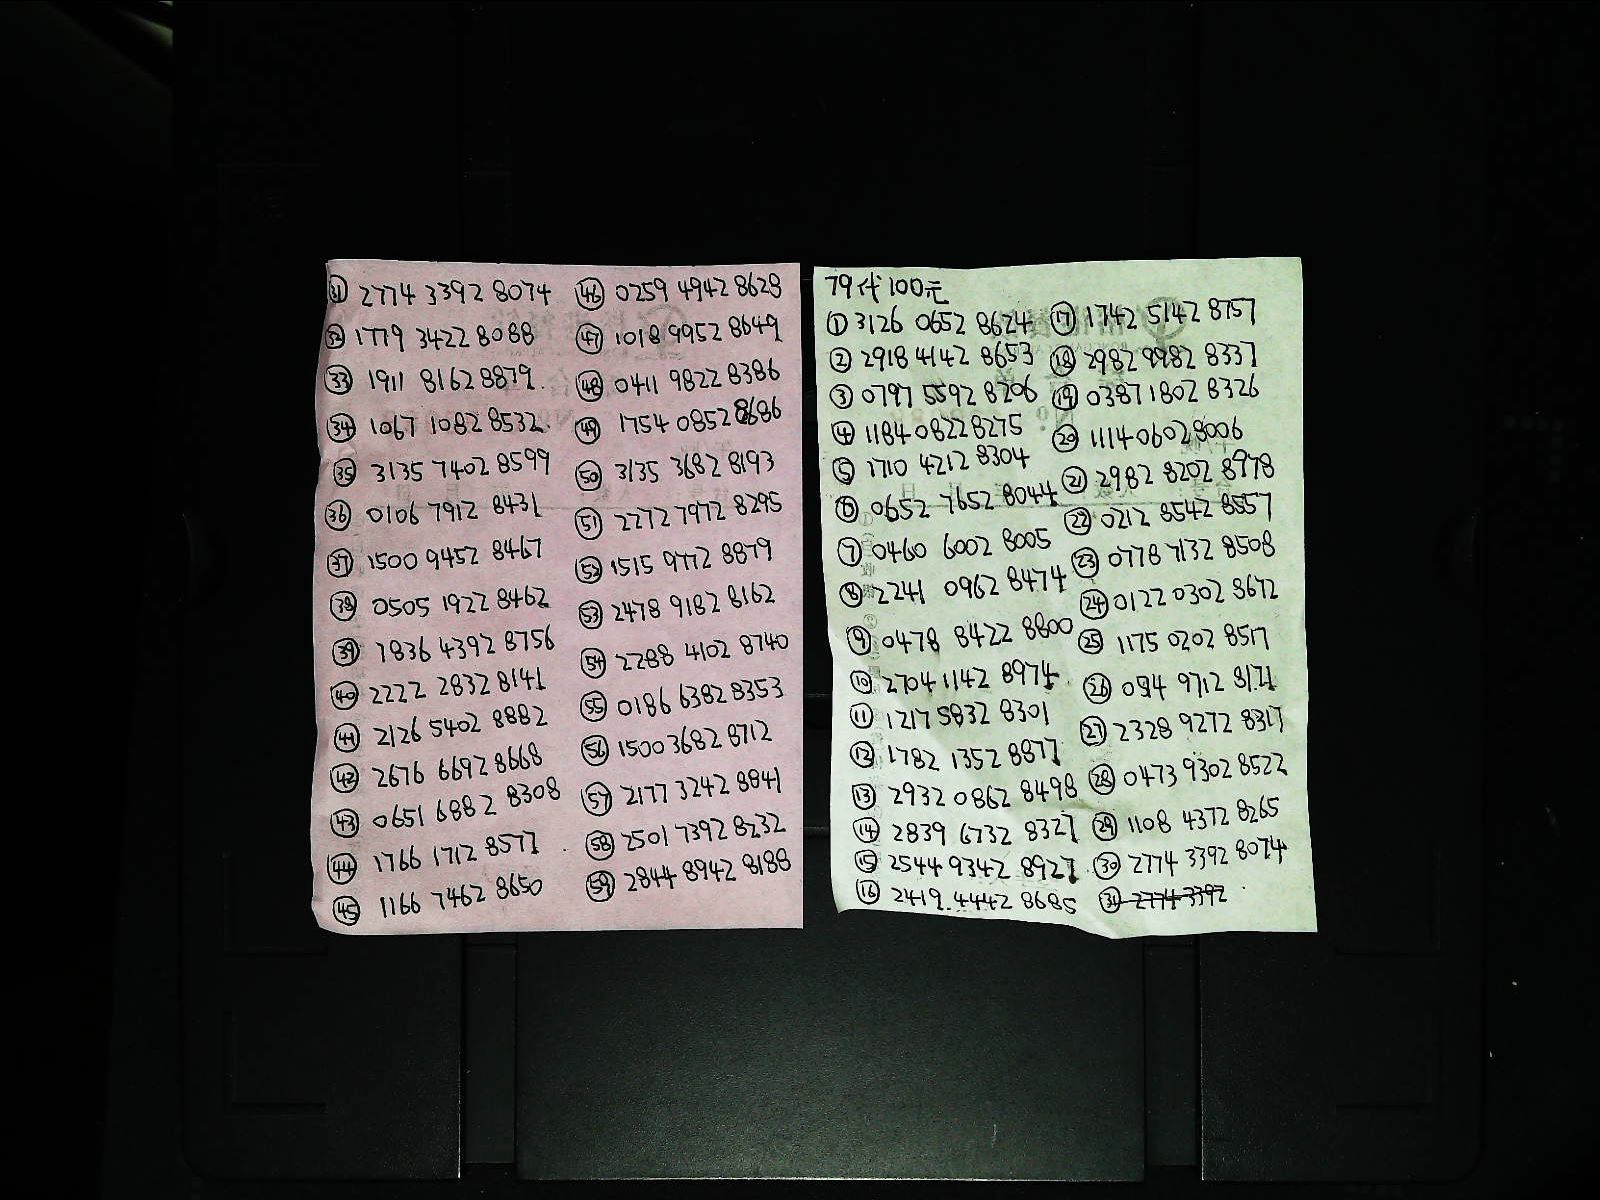 ㉛ 2774 3392 8074
㉜ 1779 3422 8088
㉝ 1911 8162 8879
㉞ 1067 1082 8532
㉟ 3135 7402 8599
㊱ 0106 7912 8431
㊲ 1500 9452 8467
㊳ 0505 1922 8462
㊴ 1836 4392 8756
㊵ 2222 2832 8141
㊶ 2126 5402 8882
㊷ 2676 6692 8668
㊸ 0651 6882 8308
㊹ 1766 1712 8577
㊺ 1166 7462 8650
㊻ 0259 4942 8628
㊼ 1018 9952 8649
㊽ 0411 9822 8386
㊾ 1754 0852 8686
㊿ 3135 3682 8193
(51) 2272 7972 8295
(52) 1515 9772 8879
(53) 2478 9182 8162
(54) 2288 4102 8740
(55) 0186 6382 8353
(56) 1500 3682 8712
(57) 2177 3242 8841
(58) 2501 7392 8232
(59) 2844 8942 8188
79代100元
① 3126 0652 8624
② 2918 4142 8653
③ 0797 5592 8206
④ 1184 0822 8275
⑤ 1710 4212 8304
⑥ 0652 7652 8044
⑦ 0460 6002 8005
⑧ 2241 0962 8474
⑨ 0478 8422 8800
⑩ 2704 1142 8974
⑪ 1217 5832 8301
⑫ 1782 1352 8877
⑬ 2932 0862 8498
⑭ 2839 6732 8327
⑮ 2544 9342 8927
⑯ 2419 4442 8685
⑰ 1742 5142 8757
⑱ 2982 9982 8337
⑲ 0387 1802 8326
⑳ 1114 0602 8006
㉑ 2982 8202 8978
㉒ 0212 8542 8557
㉓ 0778 7132 8508
㉔ 0122 0302 8672
㉕ 1175 0202 8517
㉖ 9712 8171
㉗ 2328 9272 8317
㉘ 0473 9302 8522
㉙ 1108 4372 8265
㉚ 2774 3392 8074
㉛ 2774 3392